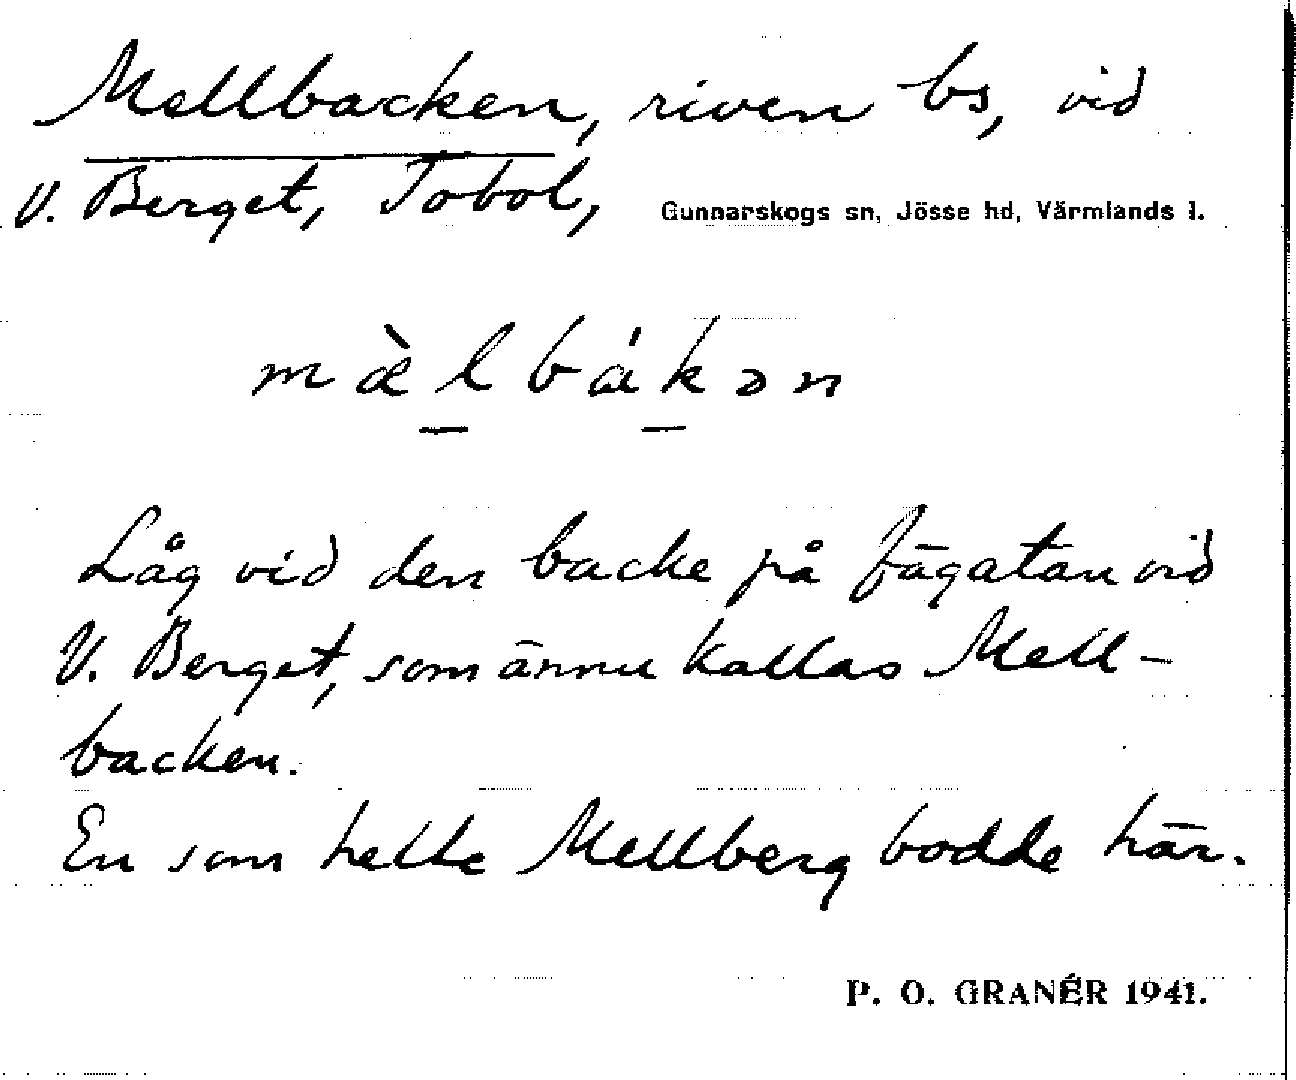 Mellbacken, riven bs, vid
V. Berget, Tobol, Gunnarskogs sn, Jösse hd, Värmlands l.
mæ̀l̲bák̲ən
Låg vid den backe på fägatan vid
V. Berget, som ännu kallas Mell-
backen.
En som hette Mellberg bodde här.
P. O. GRANÉR 1941.